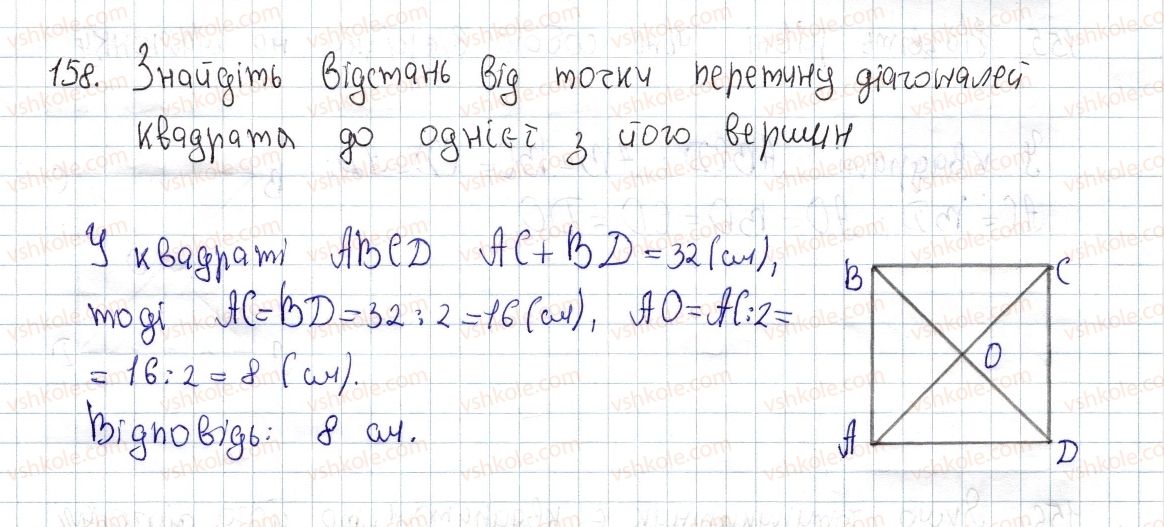 158. Знайдіть відстань від точки перетину діагоналей
квадрата до однієї з його вершин
У квадраті ABCD AC + BD = 32 (см),
тоді AC = BD = 32 : 2 = 16 (см), AO = AC : 2 =
= 16 : 2 = 8 (см).
Відповідь: 8 см.
B C
O
A D
vshkole.com